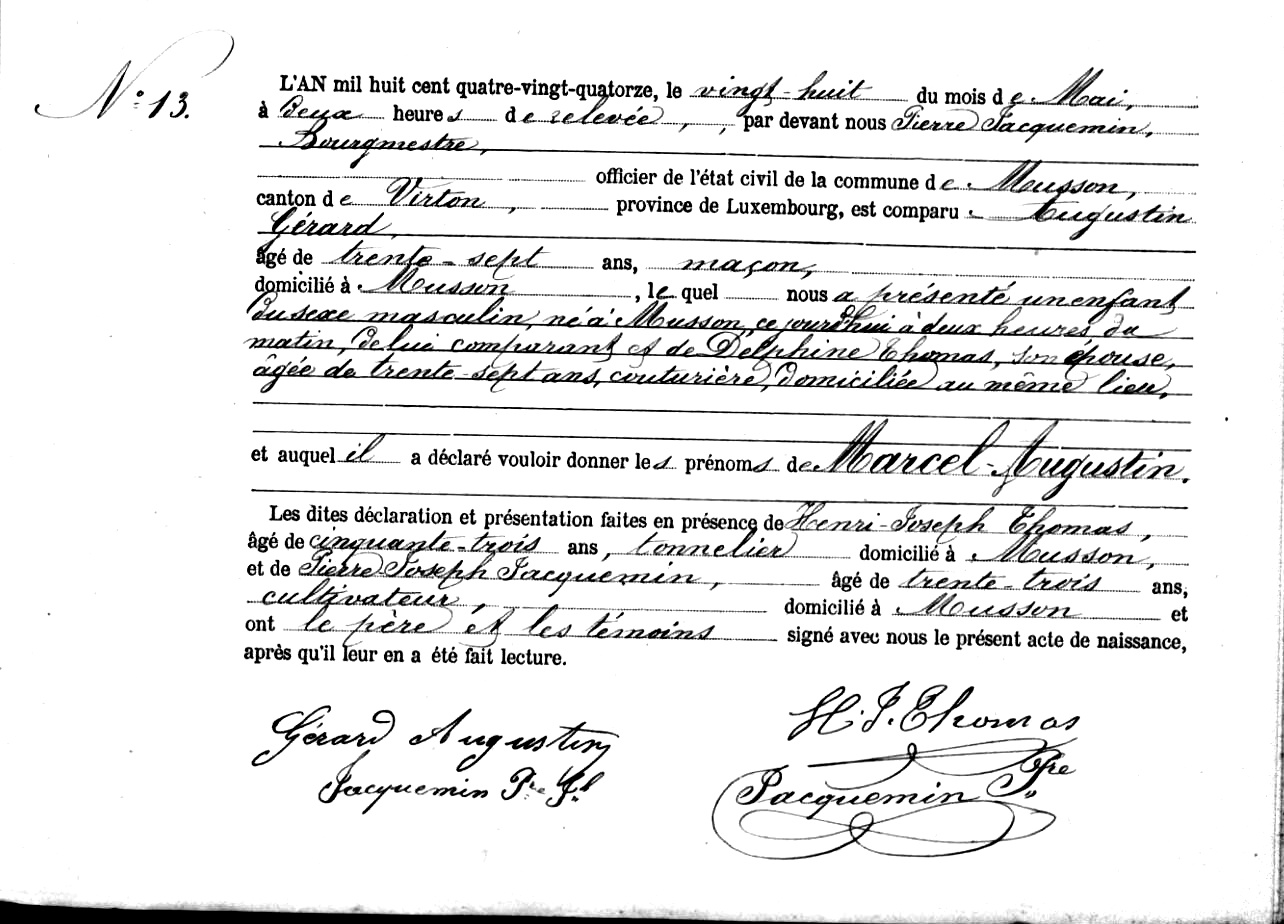 N° 13.
L'AN mil huit cent quatre-vingt-quatorze, le vingt-huit du mois de Mai,
à deux heures de relevée, , par devant nous Pierre Jacquemin,
Bourgmestre,
officier de l'état civil de la commune de Musson,
canton de Virton, province de Luxembourg, est comparu Augustin
Gérard,
âgé de trente-sept ans, maçon,
domicilié à Musson, lequel nous a présenté un enfant
du sexe masculin, né à Musson, ce jourd'hui à deux heures du
matin, de lui comparant et de Delphine Thomas, son épouse,
âgée de trente-sept ans, couturière, domiciliée au même lieu,
et auquel il a déclaré vouloir donner les prénoms de Marcel-Augustin.
Les dites déclaration et présentation faites en présence de Henri-Joseph Thomas,
âgé de cinquante-trois ans, tonnelier domicilié à Musson,
et de Pierre Joseph Jacquemin, âgé de trente-trois ans,
cultivateur, domicilié à Musson et
ont le père et les témoins signé avec nous le présent acte de naissance,
après qu'il leur en a été fait lecture.
Gérard Augustin
H. J. Thomas
Jacquemin Pre Jh
Jacquemin Pre